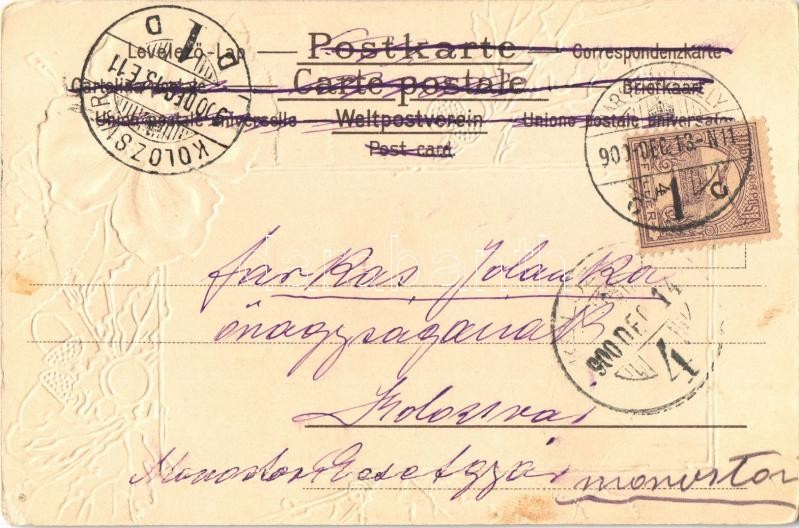 Levelező-Lap Postkarte Correspondenzkarte
Cartolina postale Carte postale Briefkaart
Union postale universelle Weltpostverein Unione postale universale
Post card
KOLOZSVÁR
900 DEC 13 N 11
1
900 DEC 14
4
Farkas Jolanka
önagyságának
Kolozsvár
Monostor monostor